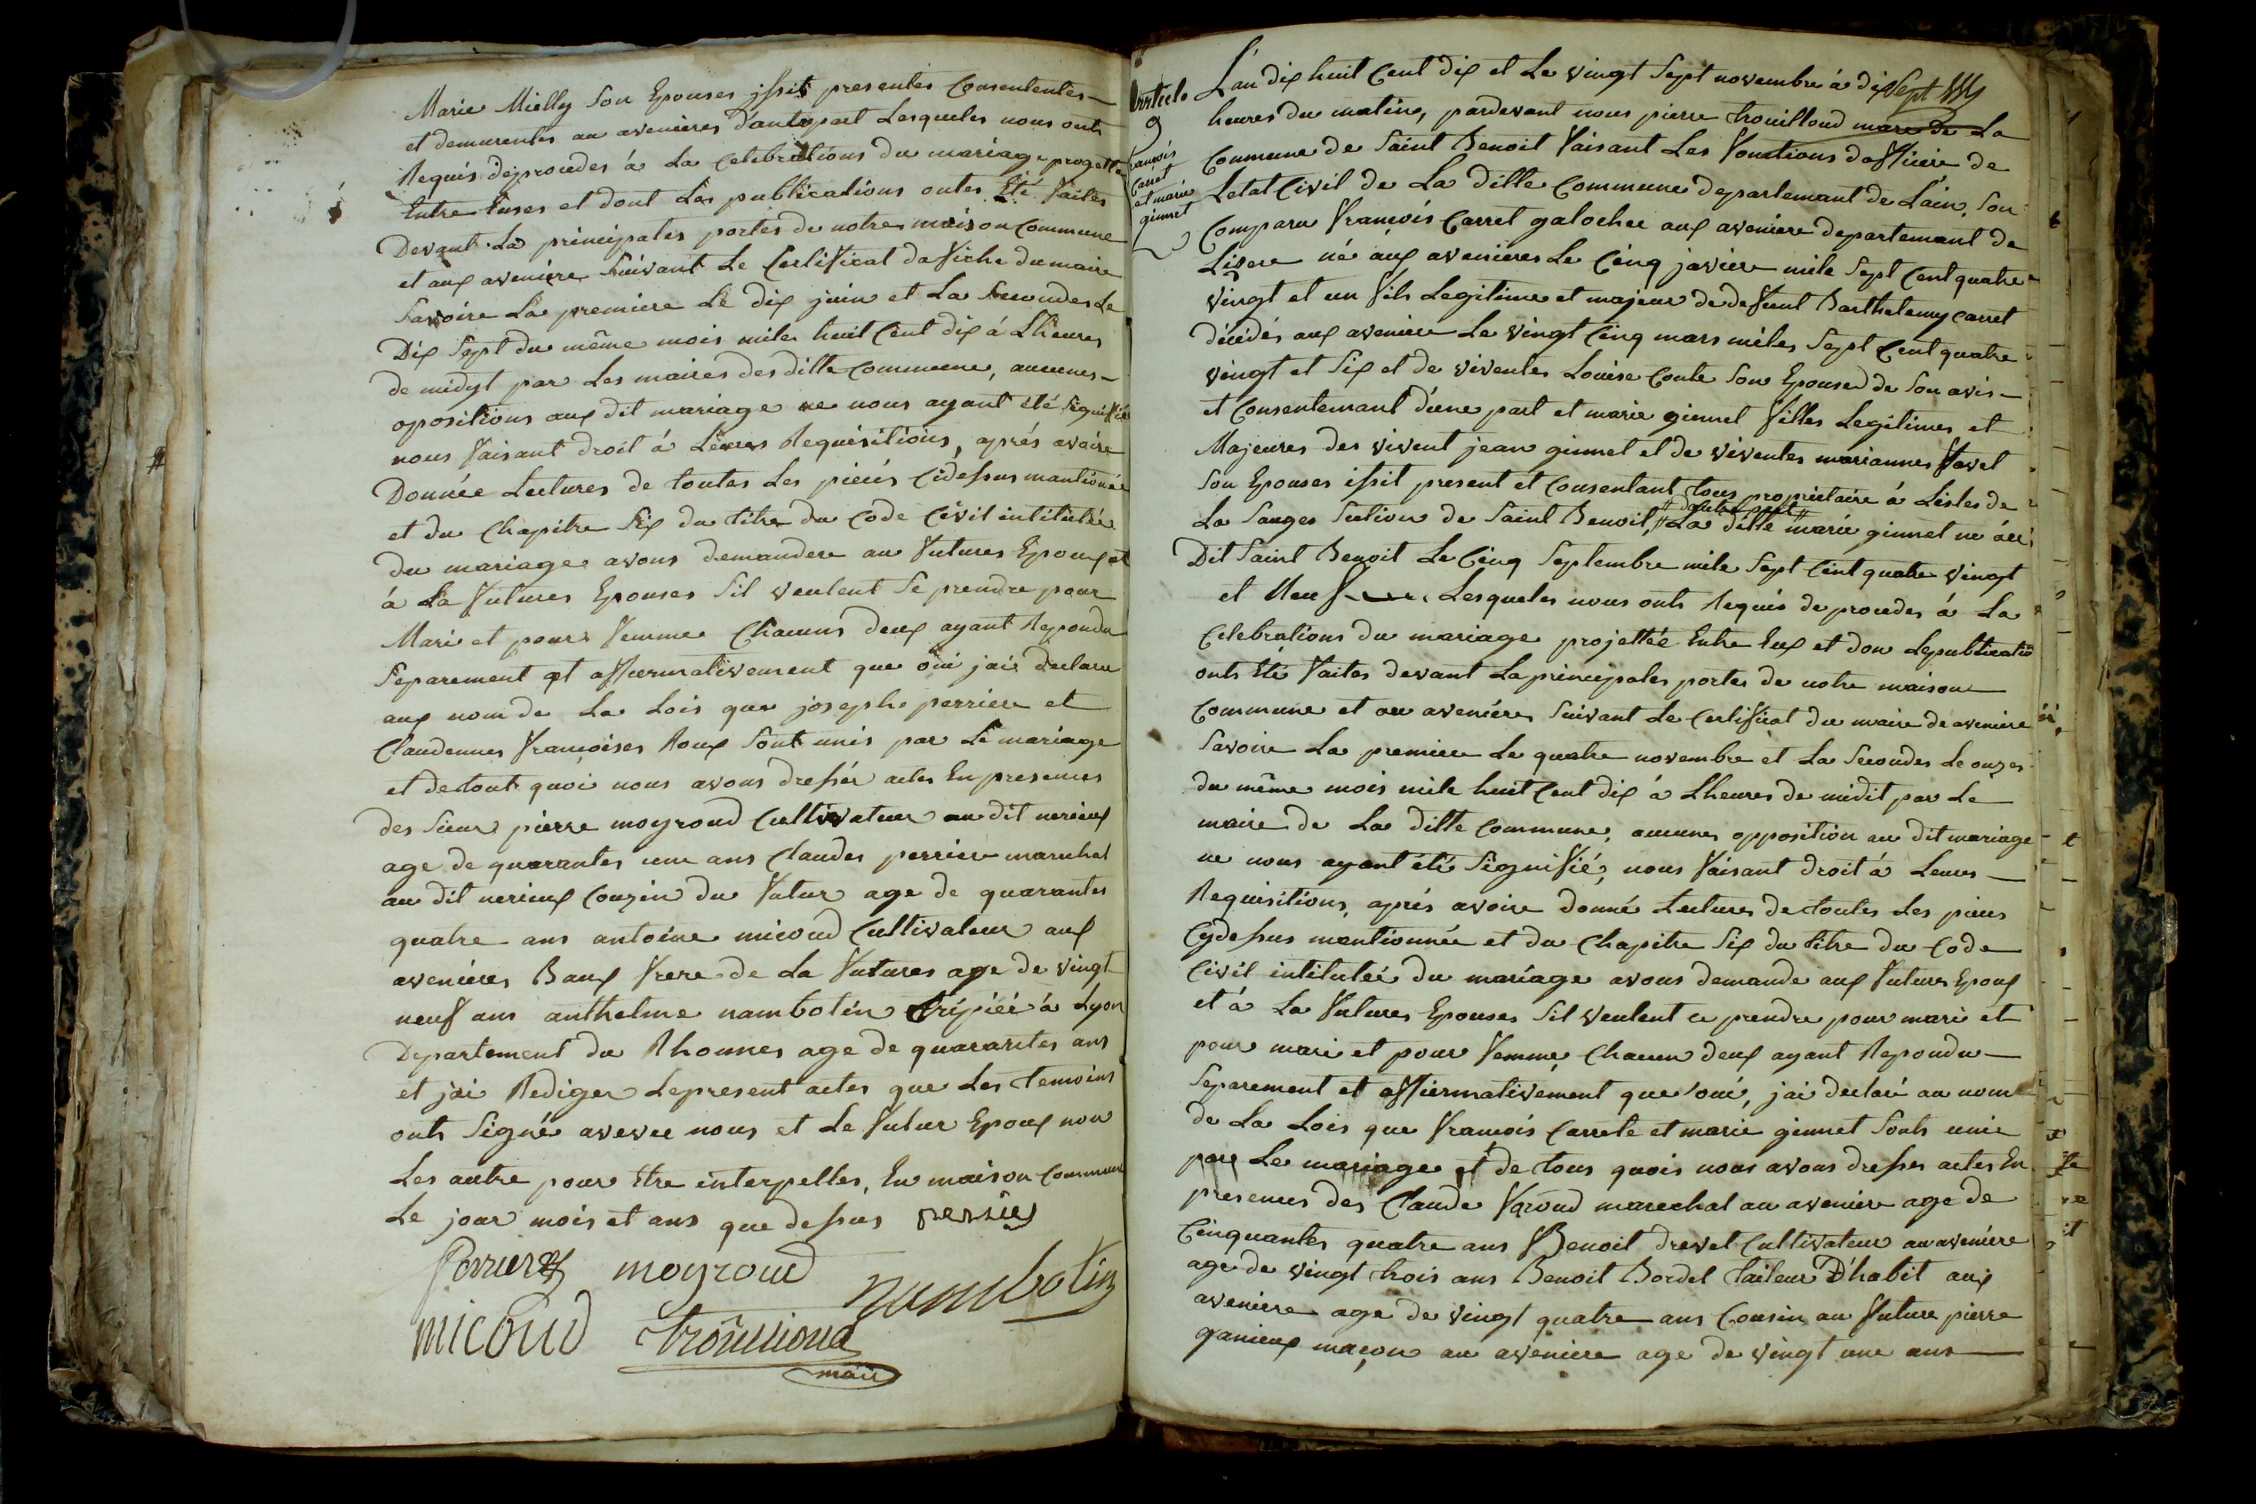 Marie Mielly Son Epouses issit presentes Consententes
et demurentes au avenieres d'autrepart Lesqueles nous onts
Requis deproceder á La Celebrations du mariage progetté
Entre Euses et dont Les publications ontes Eté faites
Devant La principales portes de notre maison Commune
et aux aveniere Suivant Le Certificat dafiche du maire
Savoire La premiere Le dix juin et La Secondes Le
Dix Sept du même mois mile huit Cent dix á Lheures
de midyt par Les maires des ditte Commune, aucunes
opositions aux dit mariage ne nous ayant été Signifié
nous faisant droit á Leures Requisitions, aprés avoire
Donnée Lectures de toutes Les pieces Cidessus mantionnée
et du Chapitre Six du titre du Code Civil intitulée
du mariage avons demandere au futures Epoux et
á La futures Epouses Sil veulent Se prendre pour
Mari et pour femme Chacuns deux ayant Repondu
Separement et affiermativement que oui jai declare
aux nom de La Lois que joseph perriere et
Claudennes françoises Roux Sont unis par Le mariage
et detout quoi nous avons dressér actes En presences
des Sieur pierre moyroud Cultivateur au dit nerieux
age de quarantes une ans Claudes perriere marechal
au dit nerieux Couzin du futur age de quarantes
quatre ans antoine micoud Cultivateur aux
avenieres Baux frere de La futures age de vingt
neuf ans anthelme nambotin Tripiéé á Lyon
Departement du Rhonnes age de quarantes ans
et jai Rediger Lepresent actes que Les temoins
onts Signé avevec nous et Le futur Epoux non
Les autre pour Etre interpelles, En maison Commune
Le jour mois et ans que dessus perries
perrier moyroud nambotin
micoud trouilloud
maire
Article
9
françois
Carret
et marie
ginnet
L'an dix huit Cent dix et Le vingt Sept novembre á dix Sept
heures du matine, pardevant nous pierre trouilloud mare de La
Commune de Saint Benoit faisant Les fonctions dofficiere de
Letat Civil de La ditte Commune departemant de L'ain, Son
Comparu françois Carret galocher aux aveniere departemant de
Lisere né aux avenieres Le Cinq janviere mile Sept Cent quatre
vingt et un fils Legitime et majeur de deffunt Barthelemy Carret
décédés aux aveniere Le vingt Cinq mars miles Sept Cent quatre
vingt et Six et de viventes Louise Conte Son Epouse de Son avis
et Consentemant d'une part et marie ginnet filles Legitimes et
Majeures des vivent jean ginnet et de viventes mariannes favel
Son Epouses issit present et Consentant tous propriétaire á Listes de
# dautre part #
La Sauges Section de Saint Benoit, # La ditte marie ginnet ne au
Dit Saint Benoit Le Cinq Septembre mile Sept Cent quatre vingt
et Neuf Lesqueles nous onts Requis de proceder á La
Celebrations du mariage projettée Entre Eux et don Lepublicatio
onts Eté faites devant Laprincipales portes de notre maison
Commune et au avenieres Suivant Le Certificat du maire de aveniere
Savoire La premiere Le quatre novembre et La Secondes Le onzes
du même mois mile huit Cent dix á Lheures de midit par Le
maire de La ditte Commune, aucunes opposition au dit mariage
ne nous ayant été Signifié, nous faisant droit á Leures
Requisitions, aprés avoire donné Lectures detoutes Les pieces
Cydessus mentionnée et du Chapitre Six du titre du Code
Civil intitulée du mariage avons demande aux futures Epoux
et á La futures Epouses Sil veulent ce prendre pour mari et
pour mari et pour femme, Chacun deux ayant Repondu
Separement et affiermativement que oui, jai declaré au nom
de La Lois que françois Carrete et marie ginnet Sonts unie
par Le mariage et de tous quois nous avons dresses actes En
presences des Claude faroud marechal au aveniere age de
Cinquantes quatre ans Benoit drevet Cultivateur au aveniere
age de vingt trois ans Benoit Bordel tailleur D'habit aux
aveniere age de vingt quatre ans Cousin au future pierre
ganieux maçon au aveniere age de vingt une ans